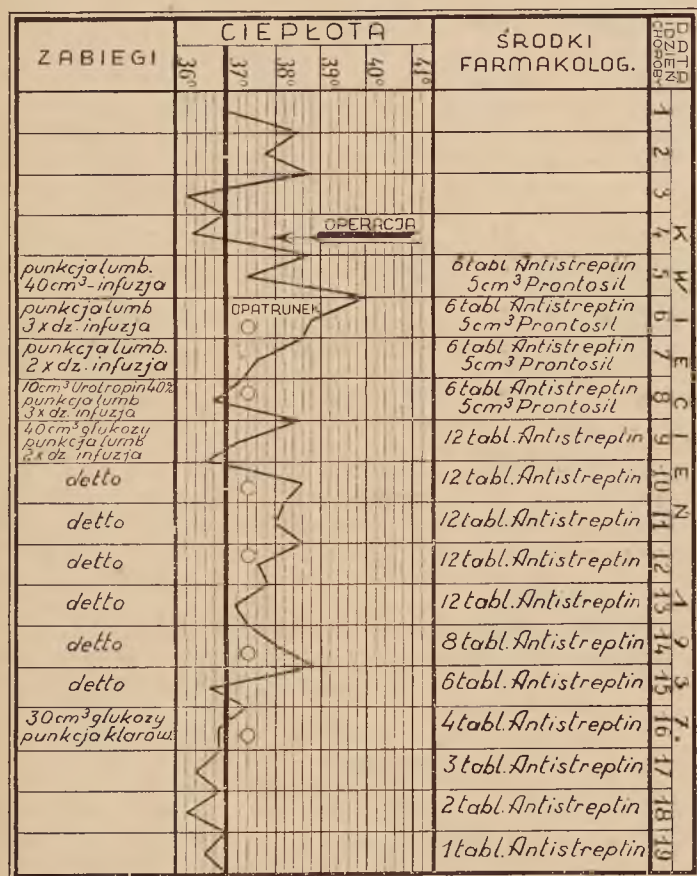 ZABIEGI
CIEPŁOTA
36° 37° 38° 39° 40° 41°
ŚRODKI
FARMAKOLOG.
DATA
I DZIEŃ
CHOROBY
KWIECIEŃ 1937.
1
2
3
OPERACJA
4
punkcja lumb.
40cm³-infuzja
6tabl Antistreptin
5cm³ Prontosil
5
punkcja lumb
3 x dz. infuzja
OPATRUNEK
6tabl Antistreptin
5cm³ Prontosil
6
punkcja lumb.
2 x dz. infuzja
6tabl Antistreptin
5cm³ Prontosil
7
10cm³ Urotropin 40%
punkcja lumb
3 x dz. infuzja
6tabl Antistreptin
5cm³ Prontosil
8
40cm³ glukozy
punkcja lumb
2 x dz. infuzja
12tabl. Antistreptin
9
detto
12tabl. Antistreptin
10
detto
12tabl. Antistreptin
11
detto
12tabl. Antistreptin
12
detto
12tabl. Antistreptin
13
detto
8tabl. Antistreptin
14
detto
6tabl. Antistreptin
15
30cm³ glukozy
punkcja klarow.
4tabl. Antistreptin
16
3tabl. Antistreptin
17
2tabl. Antistreptin
18
1tabl. Antistreptin
19